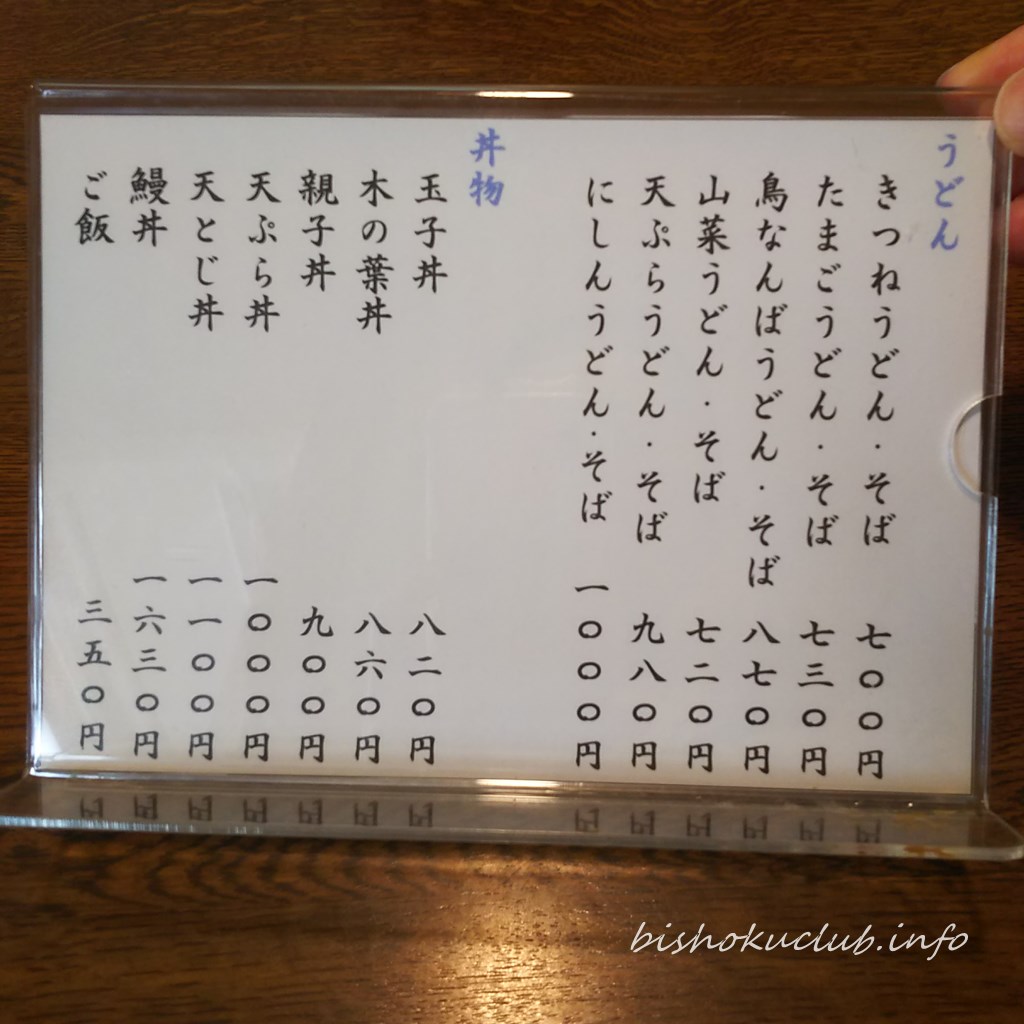 うどん
きつねうどん・そば 七〇〇円
たまごうどん・そば 七三〇円
鳥なんばうどん・そば 八七〇円
山菜うどん・そば 七二〇円
天ぷらうどん・そば 九八〇円
にしんうどん・そば 一〇〇〇円
丼物
玉子丼 八二〇円
木の葉丼 八六〇円
親子丼 九〇〇円
天ぷら丼 一〇〇〇円
天とじ丼 一一〇〇円
鰻丼 一六三〇円
ご飯 三五〇円
bishokuclub.info